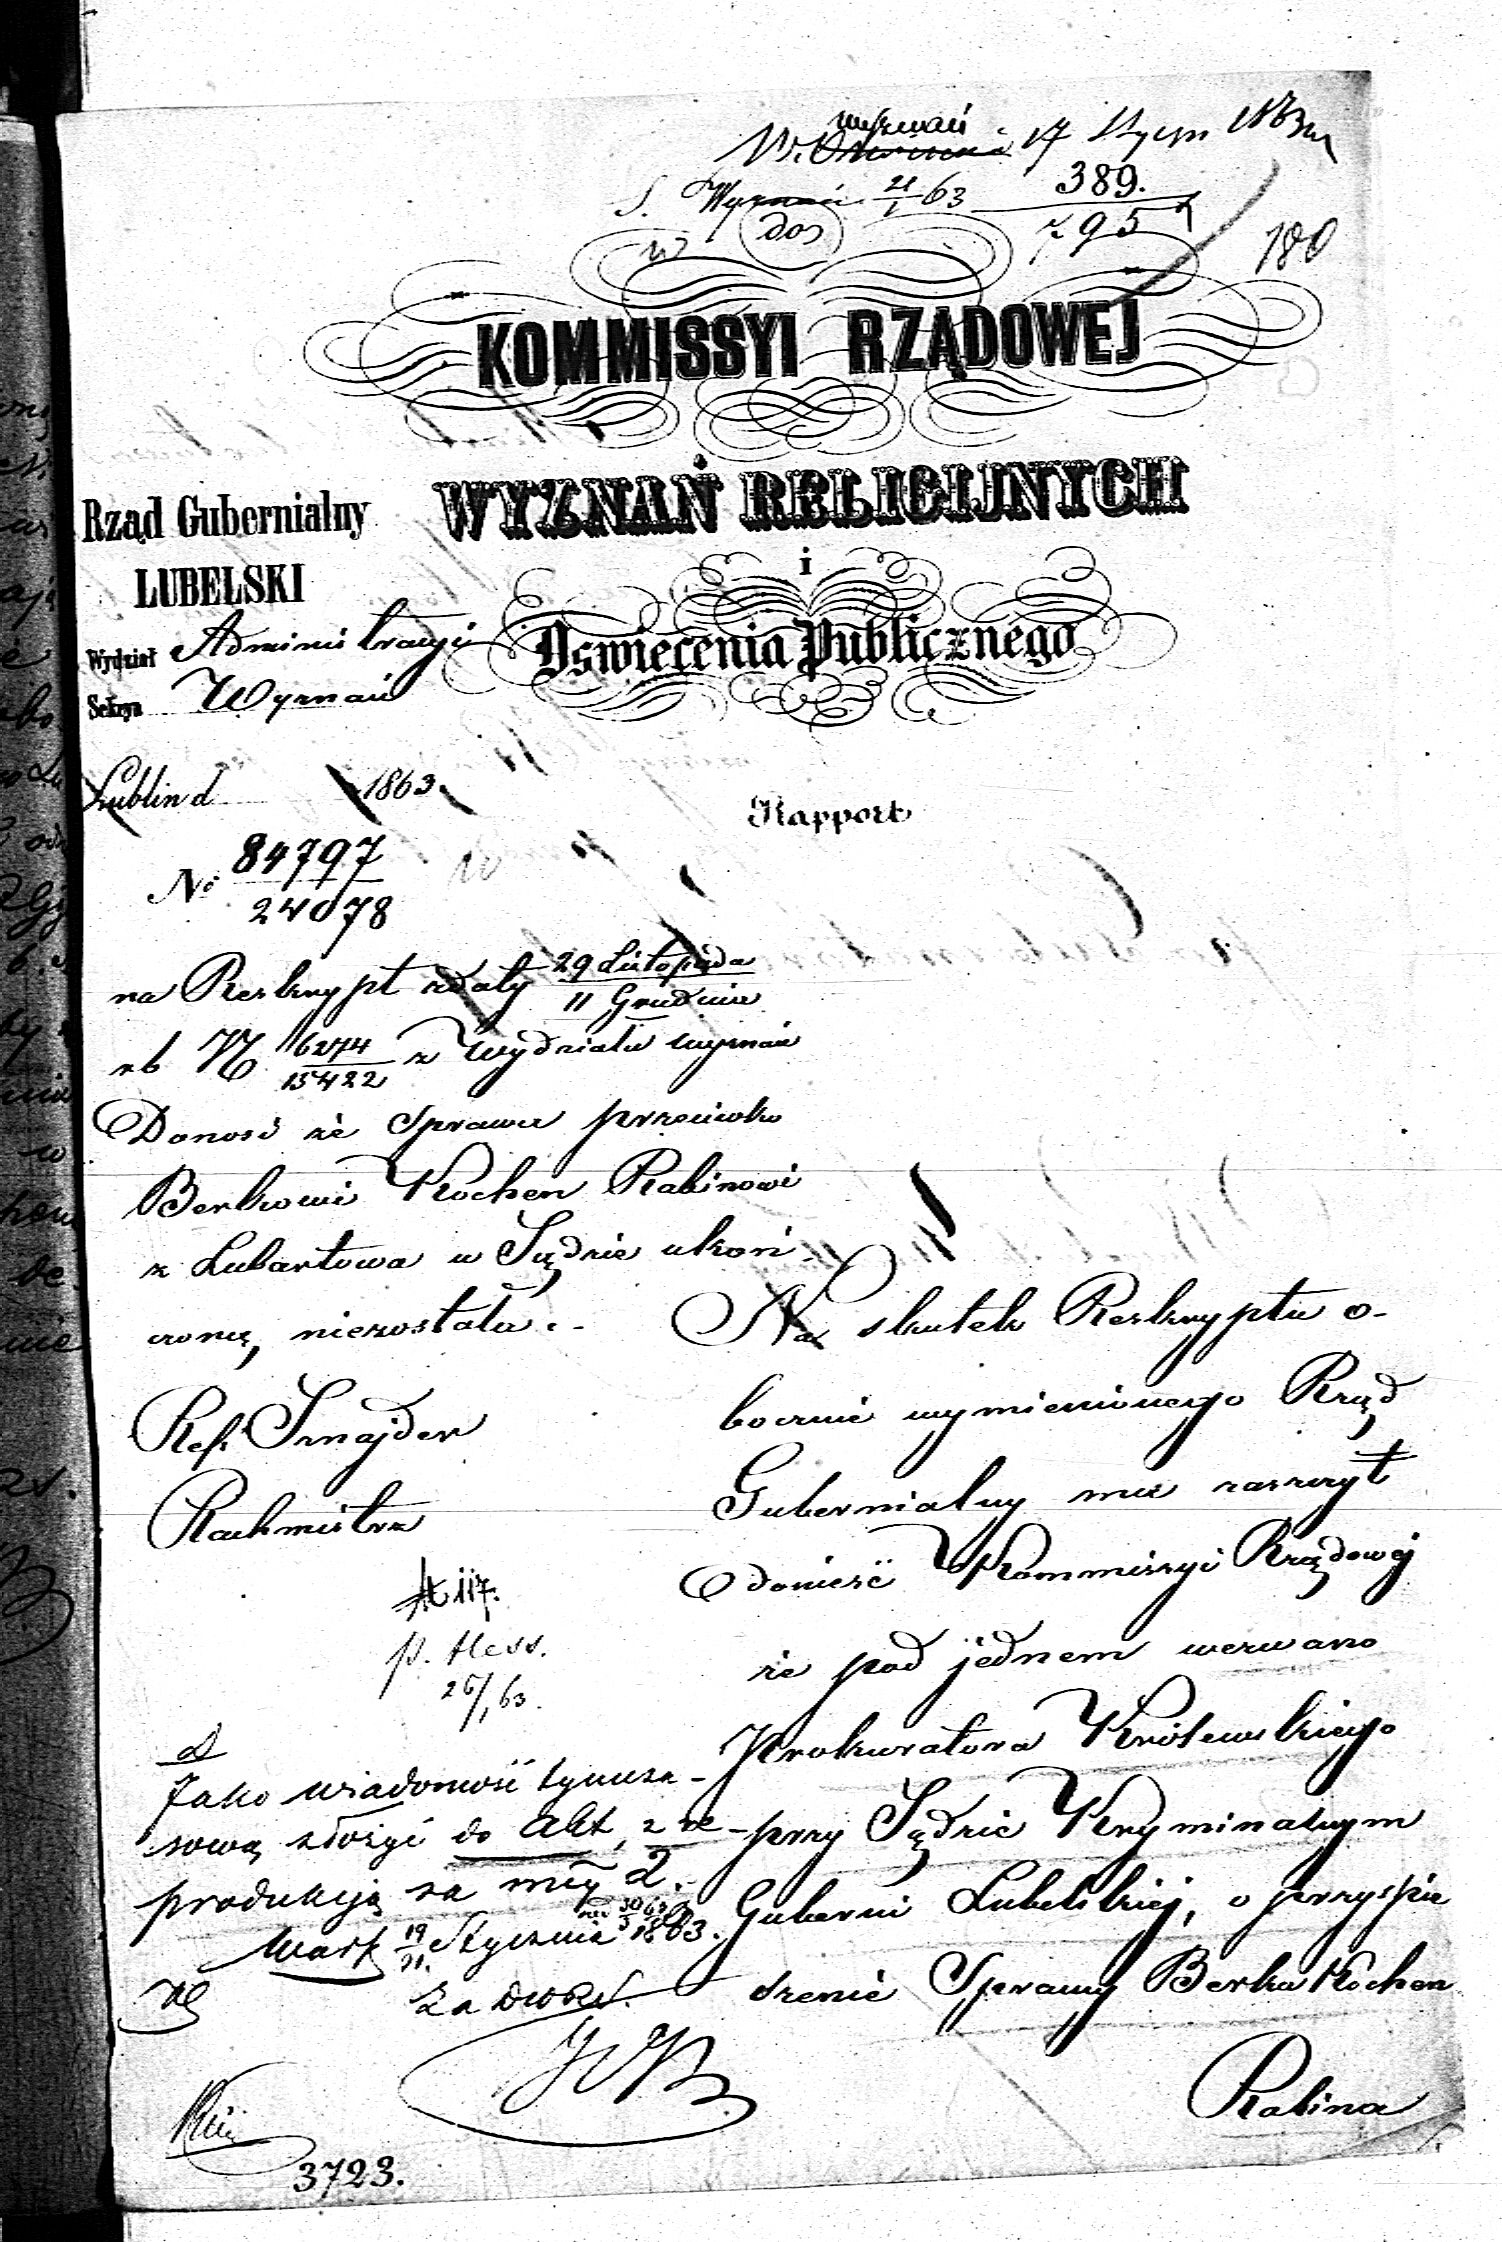 Wyznań
17 Stycz 1863
S. Wyznań 21/1 63
389.
795
dos
180
KOMMISSYI RZĄDOWEJ
WYZNAŃ RELIGIJNYCH
i
Oświecenia Publicznego
Rząd Gubernialny
LUBELSKI
Wydział Administracyi
Sekcya Wyznań
Lublin d 1863.
Rapport
No 84797
24078
na Reskrypt z daty 29 Listopada
11 Grudnia
rb N 6274
15422 z Wydziału Wyznań
Donosi że Sprawa przeciwko
Berkowi Kochen Rabinowi
z Lubartowa w Sądzie ukoń-
czoną, niezostała.-
Ref. Sznajder
Rachmistrz
117.
p. Hess.
26/1 63.
Jako wiadomość tymcza-
sową złożyć do Akt, z re-
produkcją za mcy 2.
Warsz 19/31 Stycznia 1863.
Za Dyr.
3723.
Na skutek Reskryptu o-
bocznie wymienionego Rząd
Gubernialny ma zaszczyt
donieść Kommissyi Rządowej
że pod jednem wezwano
Prokuratora Królewskiego
przy Sądzie Kryminalnym
Guberni Lubelskiej, o przyspie
szenie Sprawy Berka Kochen
Rabina